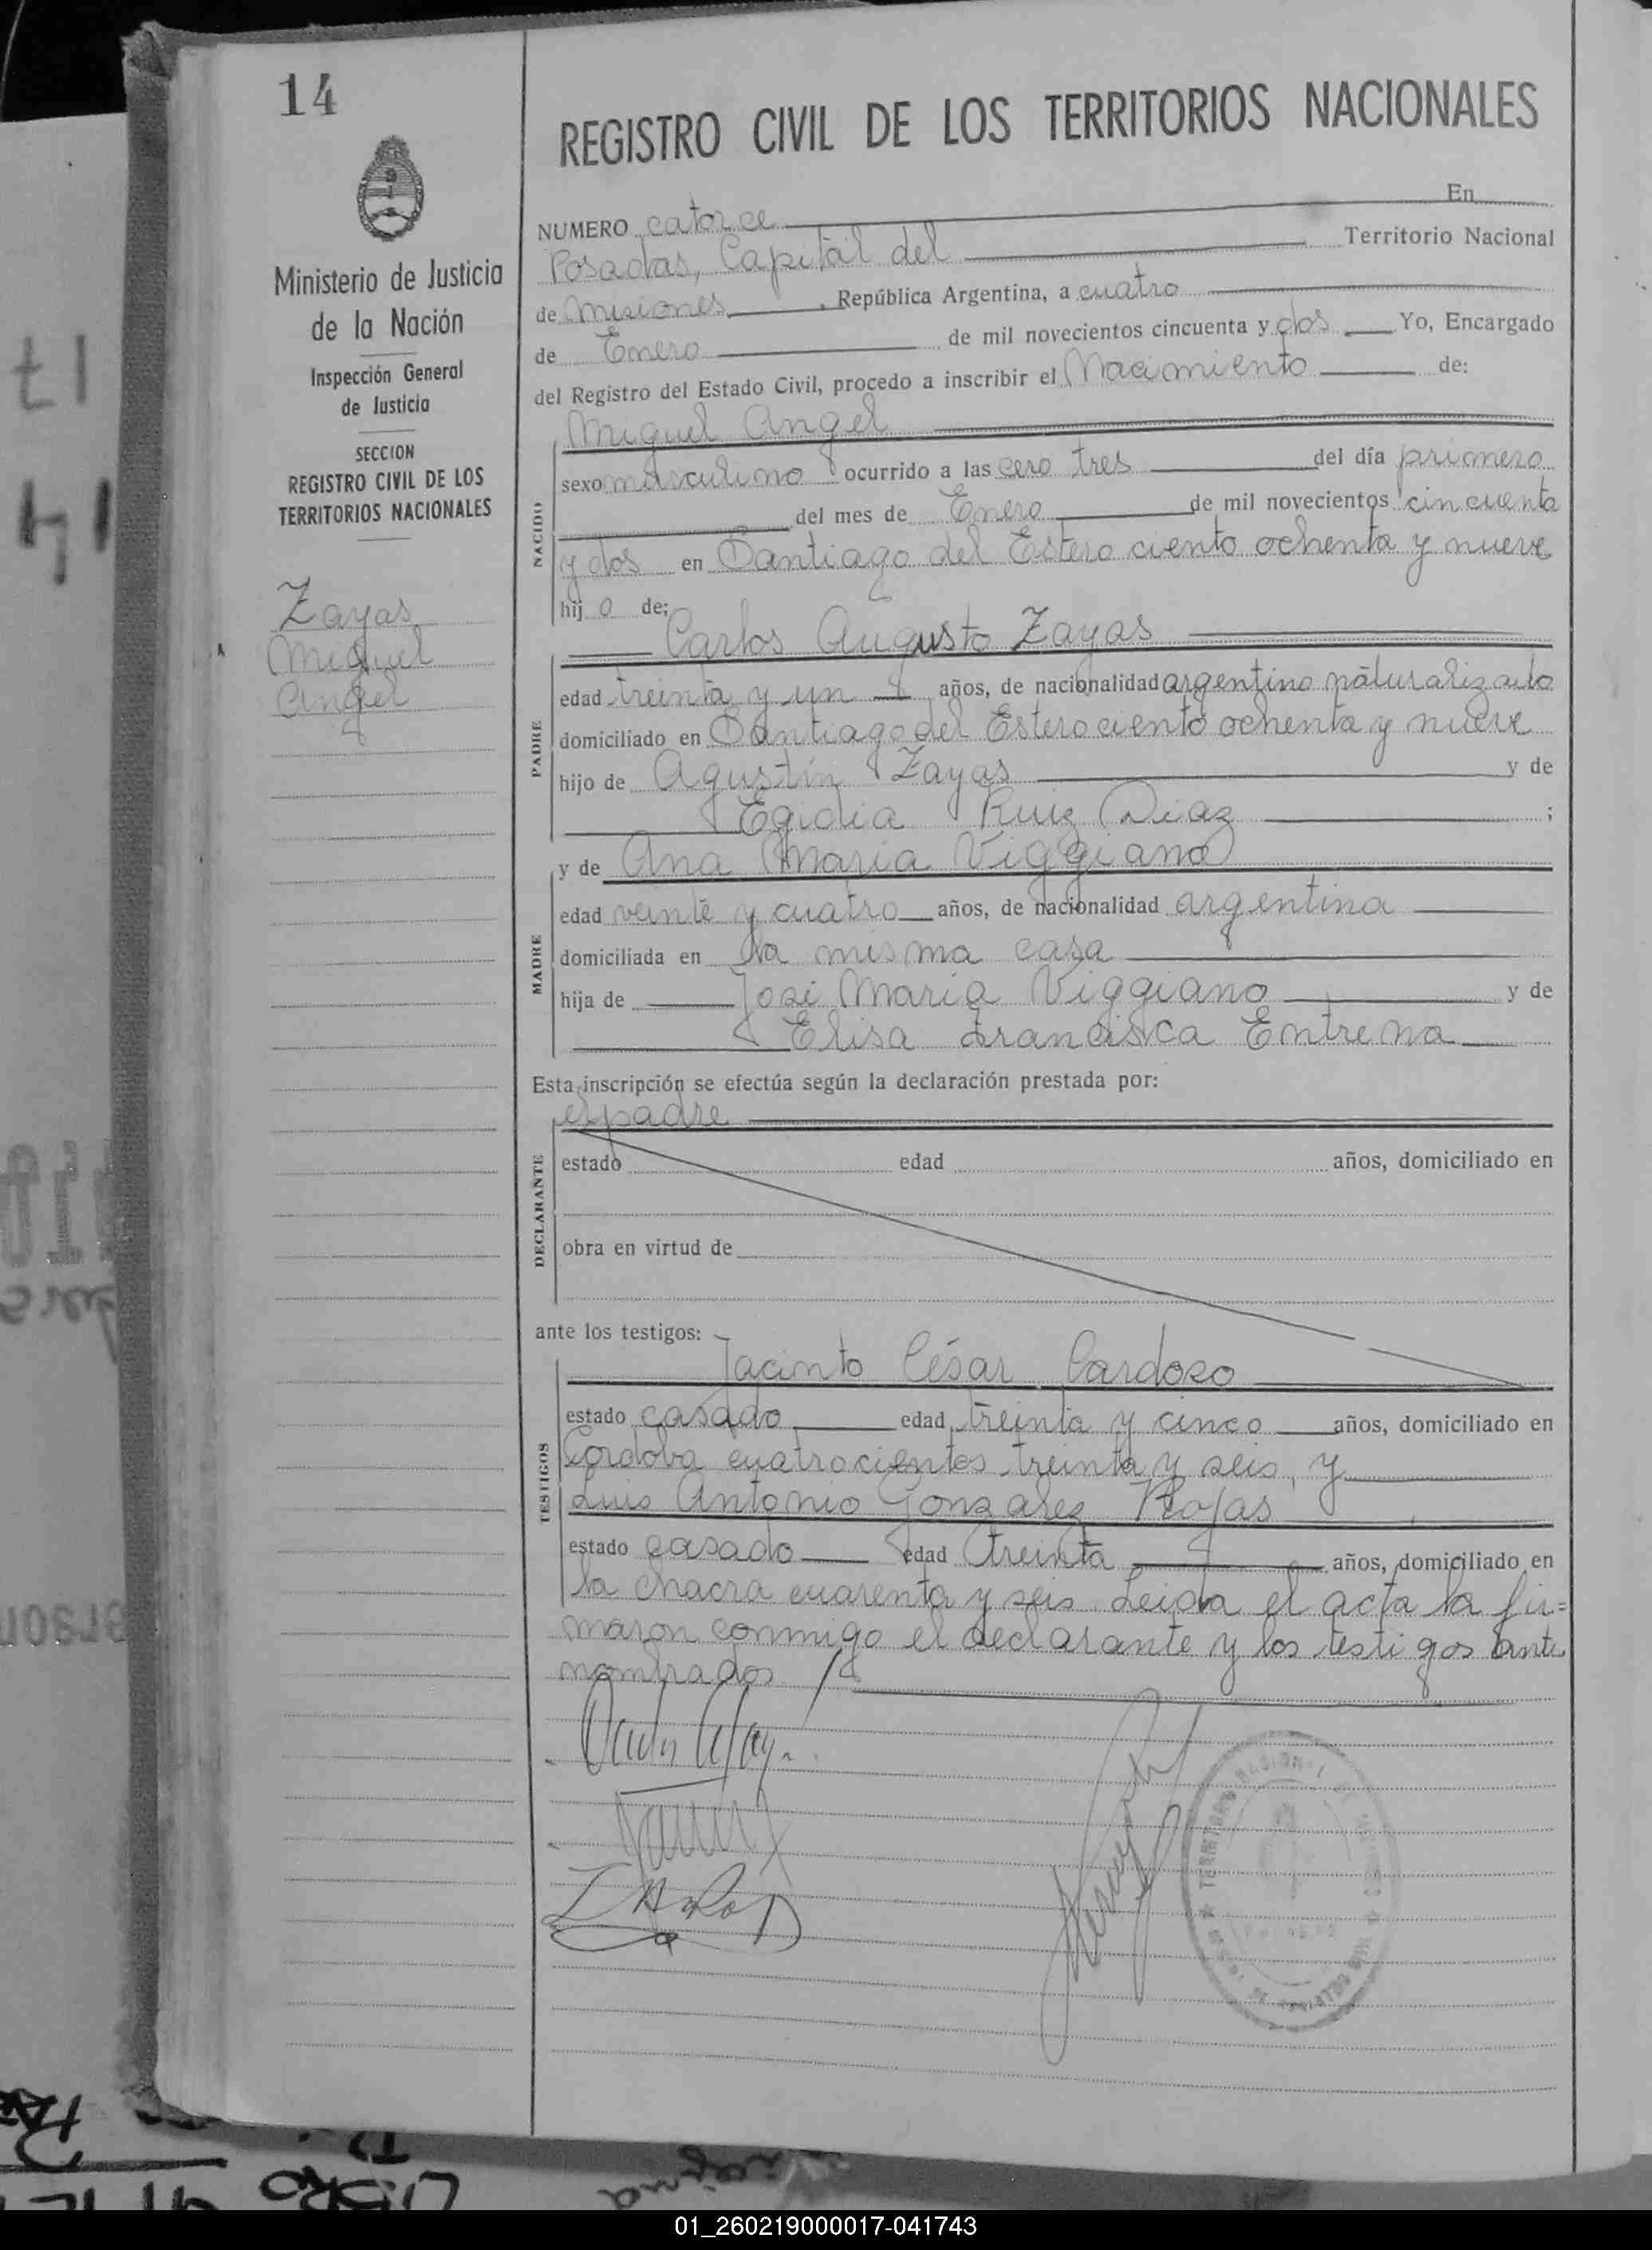 14
Ministerio de Justicia
de la Nación
Inspección General
de Justicia
SECCION
REGISTRO CIVIL DE LOS
TERRITORIOS NACIONALES
Zayas
Miguel
Angel
REGISTRO CIVIL DE LOS TERRITORIOS NACIONALES
NUMERO catorce En
Posadas, Capital del Territorio Nacional
de Misiones, República Argentina, a cuatro
de Enero de mil novecientos cincuenta y dos Yo, Encargado
del Registro del Estado Civil, procedo a inscribir el Nacimiento de:
Miguel Angel
NACIDO
sexo masculino ocurrido a las cero tres del día primero
del mes de Enero de mil novecientos cincuenta
y dos en Santiago del Estero ciento ochenta y nueve
hijo de;
Carlos Augusto Zayas
PADRE
edad treinta y un años, de nacionalidad argentino naturalizado
domiciliado en Santiago del Estero ciento ochenta y nueve
hijo de Agustín Zayas y de
Egidia Ruiz Diaz ;
y de Ana María Viggiano
MADRE
edad veinte y cuatro años, de nacionalidad argentina
domiciliada en la misma casa
hija de José María Viggiano y de
Elisa Francisca Entrena
Esta inscripción se efectúa según la declaración prestada por:
el padre
DECLARANTE
estado edad años, domiciliado en
obra en virtud de
ante los testigos:
Jacinto César Cardozo
TESTIGOS
estado casado edad treinta y cinco años, domiciliado en
Córdoba cuatrocientos treinta y seis, y
Luis Antonio Gonzalez Rojas
estado casado edad treinta años, domiciliado en
la chacra cuarenta y seis. Leida el acta la fir=
maron conmigo el declarante y los testigos ante
nombrados
17
14
LIBRO
01_260219000017-041743